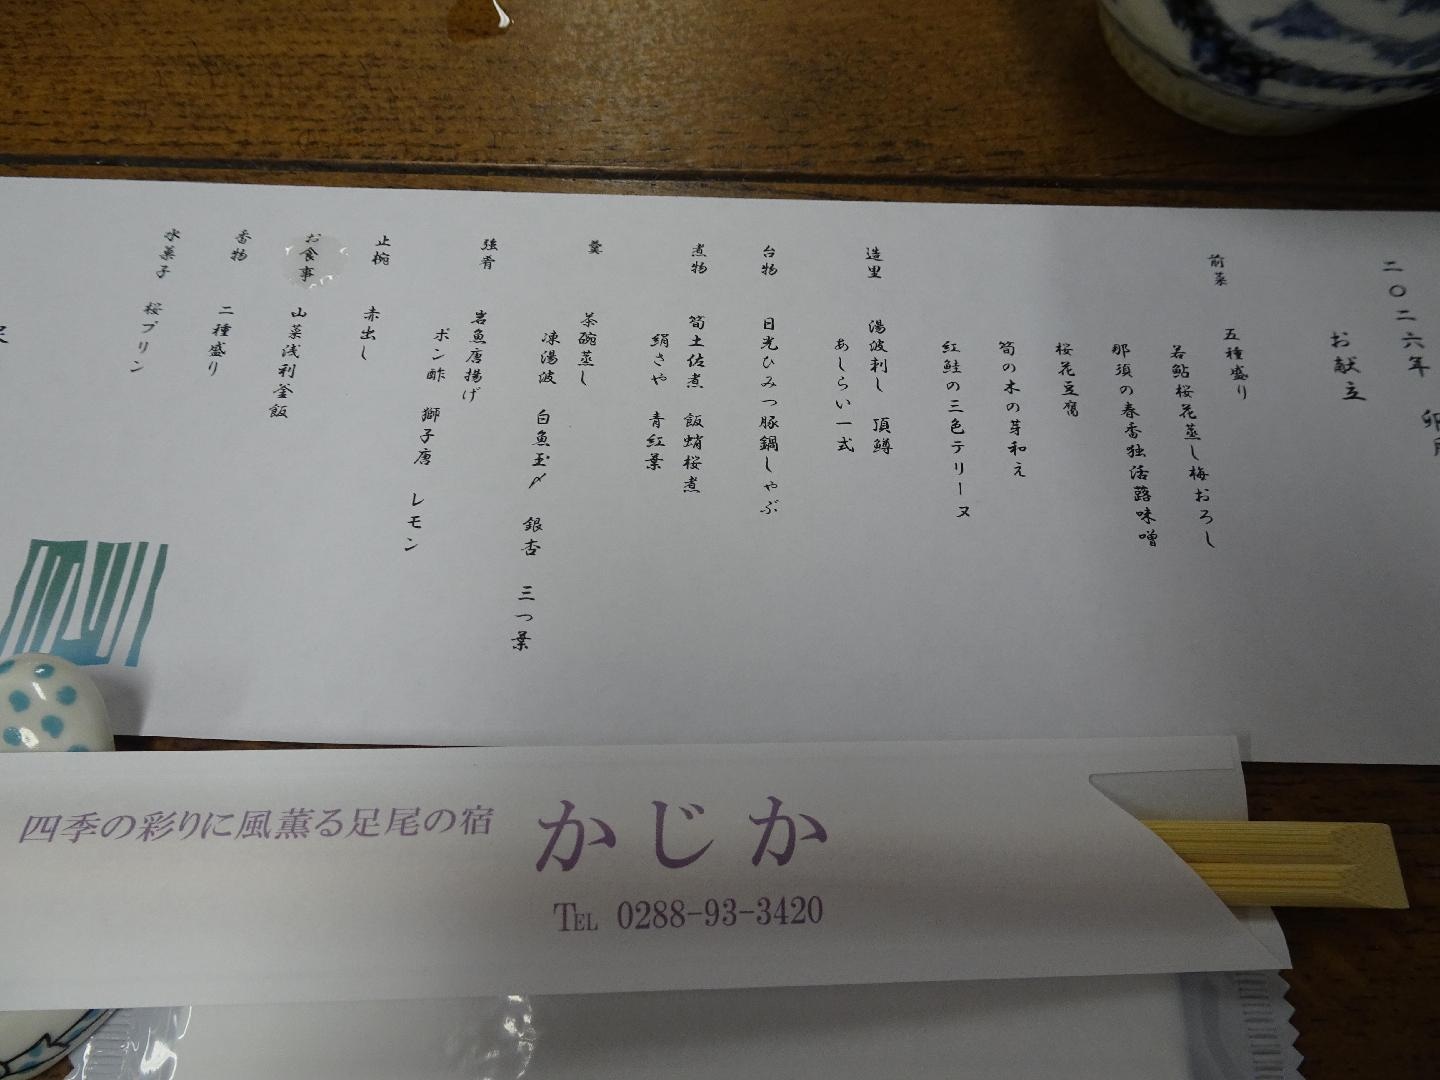 二〇二六年 卯月
お献立
前菜 五種盛り
若鮎桜花蒸し梅おろし
那須の春香独活蕗味噌
桜花豆腐
筍の木の芽和え
紅鮭の三色テリーヌ
造里 湯波刺し 頂鱒
あしらい一式
台物 日光ひみつ豚鍋しゃぶ
煮物 筍土佐煮 飯蛸桜煮
絹さや 青紅葉
羹 茶碗蒸し
凍湯波 白魚玉〆 銀杏 三つ葉
強肴 岩魚唐揚げ
ポン酢 獅子唐 レモン
止椀 赤出し
お食事 山菜浅利釜飯
香物 二種盛り
水菓子 桜プリン
四季の彩りに風薫る足尾の宿 かじか
TEL 0288-93-3420